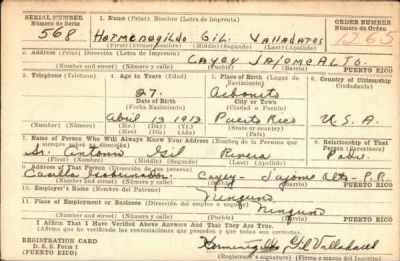 SERIAL NUMBER
Número de Serie
1. Name (Print) Nombre (Letra de Imprenta)
ORDER NUMBER
Número de Orden
568
Hermenegildo Gil Valladares
1365
(First) (Primer Nombre) (Middle) (Segundo) (Last) (Apellido)
2. Address (Print) Dirección (Letra de Imprenta)
CAYEY JAJOME ALTO.
(Number and street) (Número y calle) (Town) (Ciudad o Pueblo) PUERTO RICO
3. Telephone (Teléfono)
4. Age in Years (Edad)
5. Place of Birth (Lugar de Nacimiento)
6. Country of Citizenship (Ciudadanía)
27.
Aibonito
Date of Birth
(Fecha Nacimiento)
City or Town
(Ciudad o Pueblo)
Abril 13 1913
Puerto Rico
U. S. A.
State or country
7. Name of Person Who Will Always Know Your Address (Nombre de la Persona que siempre estará su dirección)
8. Relationship of That Person (Parentesco)
Sr. Antonio Gil Rivera
Padre.
(First) (Nombre) (Middle) (Segundo) (Last) (Apellido)
9. Address of That Person (Dirección de esta persona)
Cayey - Jajome Alto - P.R.
(Number and street) (Número y calle) (Town) (Ciudad o Pueblo) PUERTO RICO
10. Employer's Name (Nombre del Patrono)
Ninguno
11. Place of Employment or Business (Dirección donde está empleado)
Ninguno
(Number and street) (Número y calle) (Town) (Ciudad o Pueblo) PUERTO RICO
I Affirm That I Have Verified Above Answers And That They Are True.
(Afirmo que he verificado las contestaciones que preceden y que son todas ciertas.)
REGISTRATION CARD
D. S. S. Form 1
(PUERTO RICO)
Hermenegildo Gil Valladares
(Registrant's signature) (Firma o marca del Inscrito)